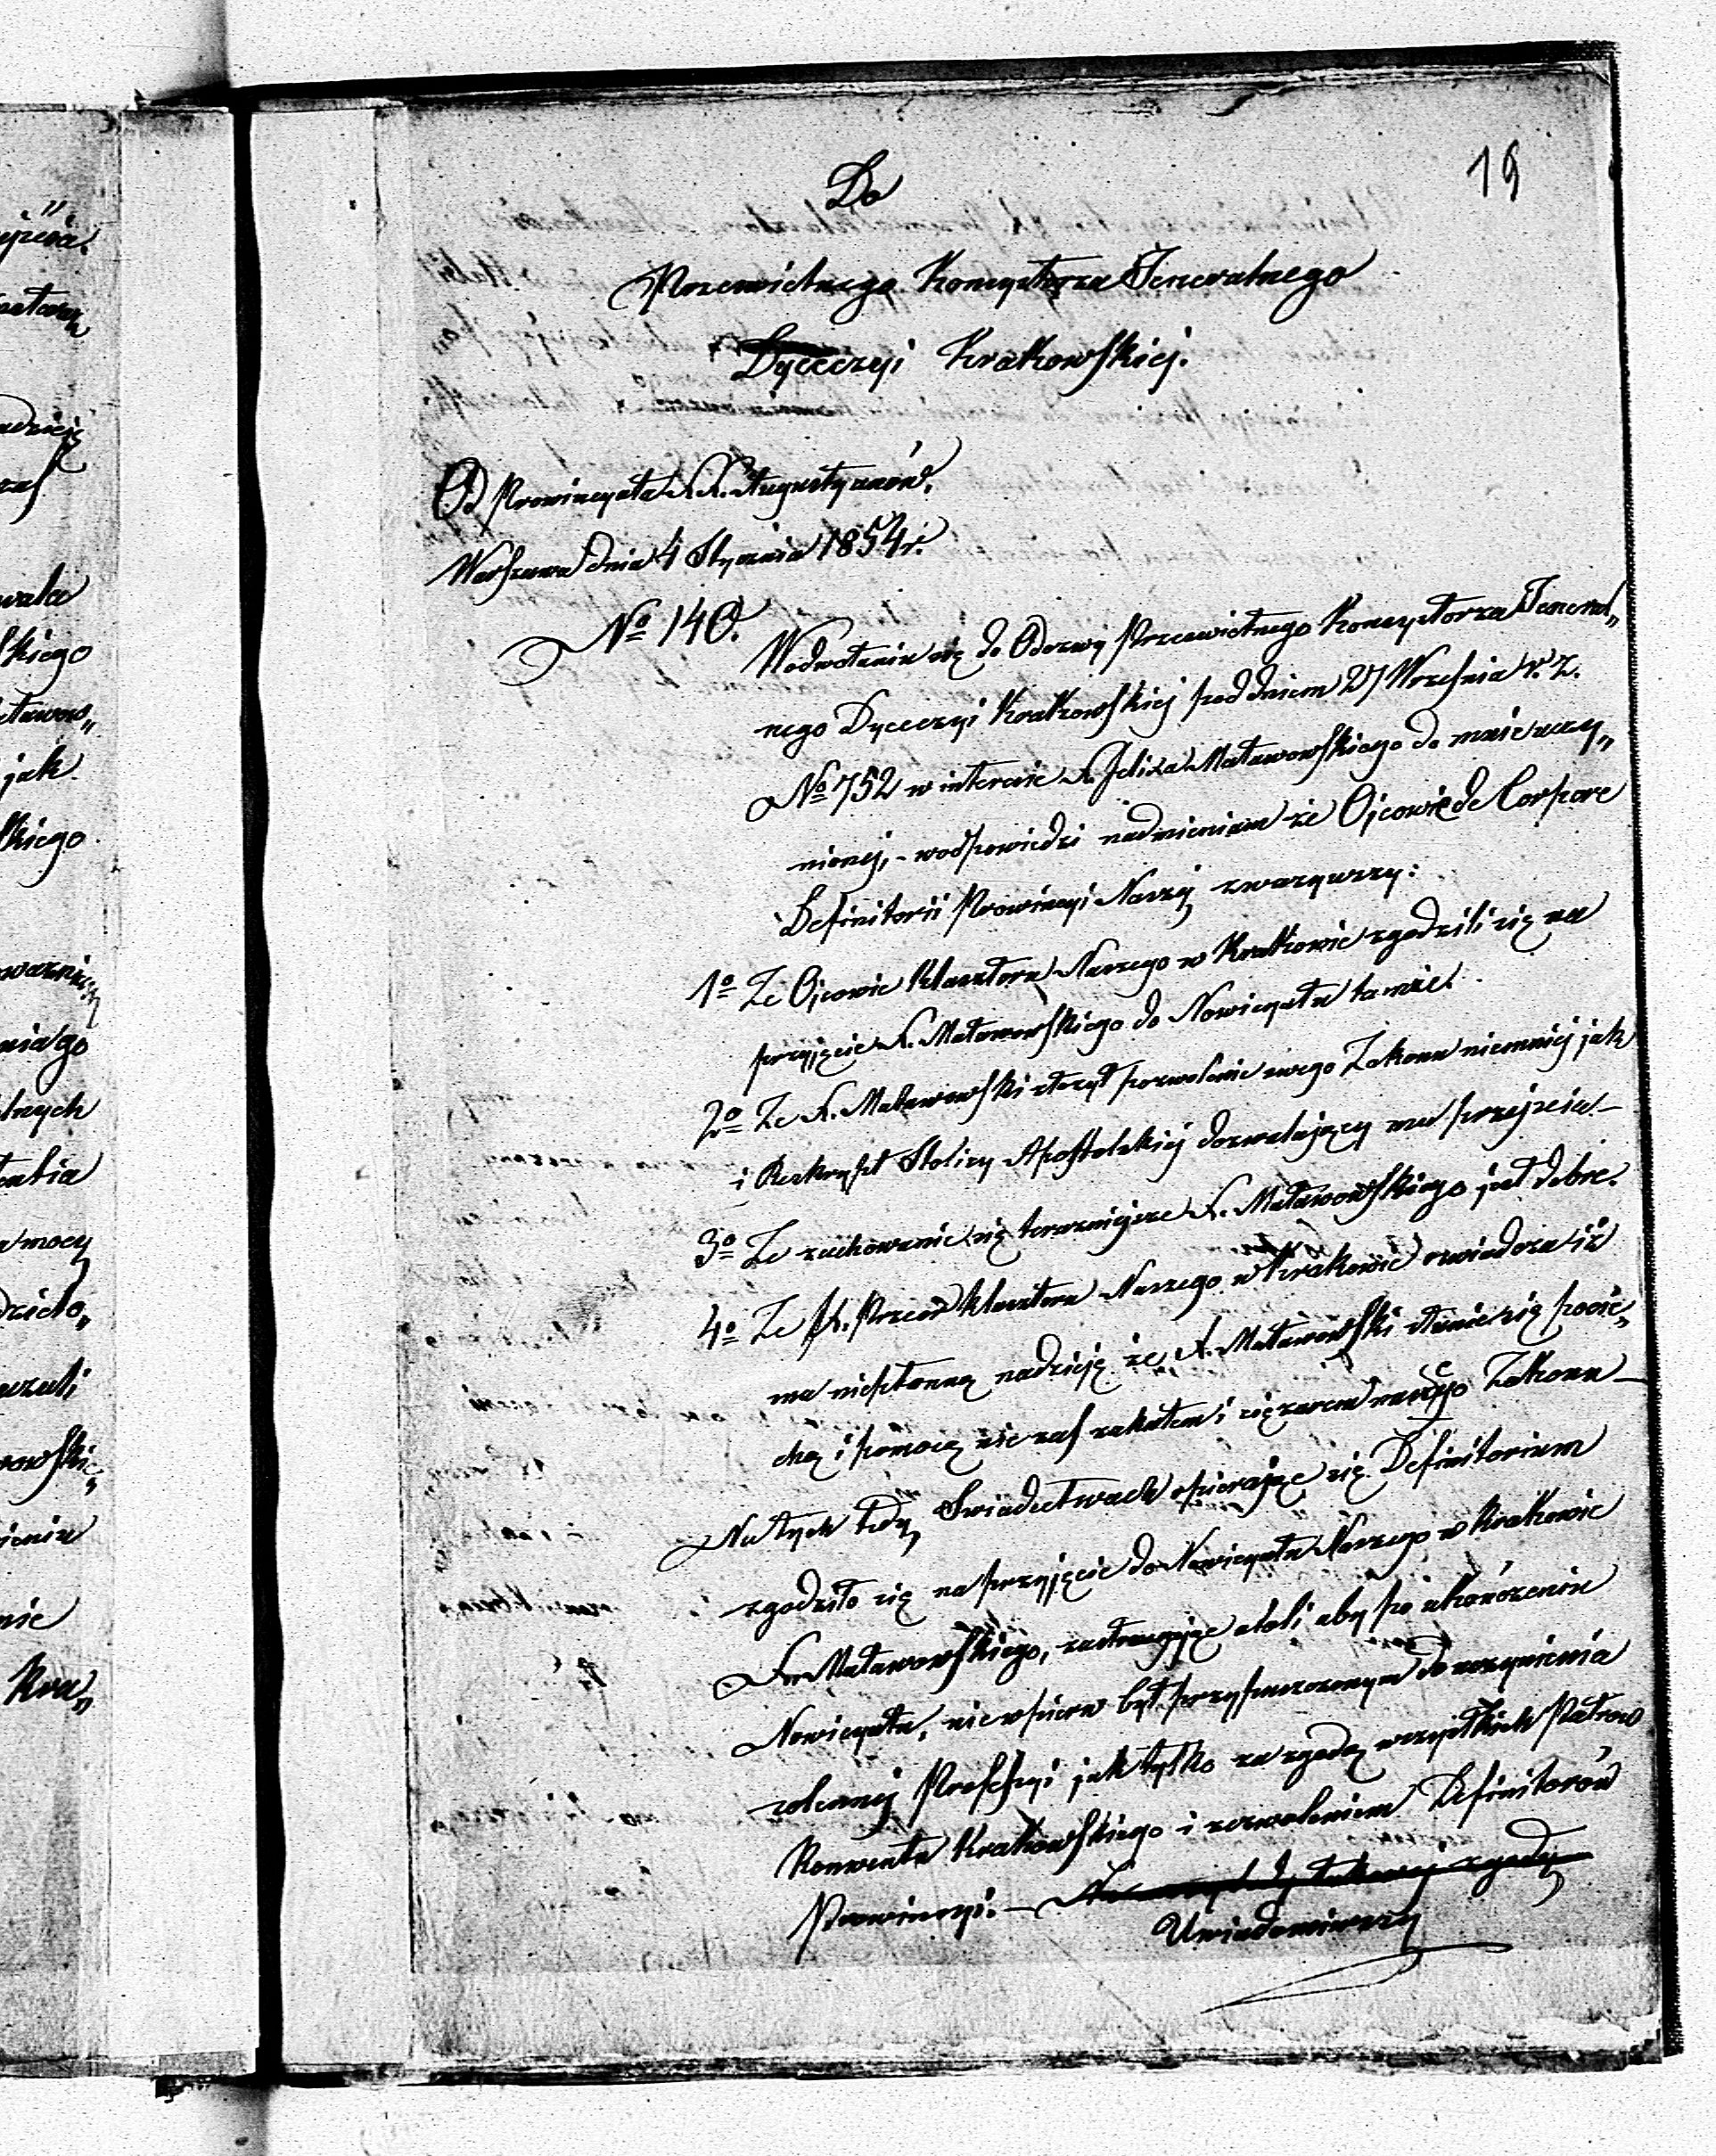 19
Do
Przeswietnego Konsystorza Jeneralnego
Dyecezyi Krakowskiej.
Od Prowincyała X.X. Augustyanów.
Warszawa dnia 4 Stycznia 1854 r.
№ 140.
Wodwołaniu się do Odezwy Przeswietnego Konsystorza Jeneral„
nego Dyecezyi Krakowskiej pod dniem 27 Wrzesnia r. z.
№ 752 w interesie X. Felixa Matawowskiego do mnie uczy„
nionej, - wodpowiedzi nadmieniam że Ojcowie de Corpore
Definitorii Prowincyi Naszej zwazywszy:
1º Ze Ojcowie Klasztoru Naszego w Krakowie zgodzili się na
przyjęcie X. Matawowskiego do Nowicyatu tamże.
2º Ze X. Matawowski złożył pozwolenie swego Zakonu niemniej jak
i Reskrypt Stolicy Apostolskiej dozwalający mu przejscia –
3º Ze zachowanie się terazniejsze X. Matawowskiego jest dobre.
4º Ze X. Przeor Klasztoru Naszego w Krakowie oswiadcza iż
ma niepłonną nadzieję że X. Matawowski stanie się pocie„
chą i pomocą nie zas zakałem i ciężarem naszego Zakonu –
Na tych tedy Swiadectwach opierając się Definitorium
zgodziło się na przyjęcie do Nowicyatu Naszego w Krakowie
X. Matawowskiego, zastrzegając atoli aby po ukończeniu
Nowicyatu, nie wpierw był przypuszczonym do uczynienia
solennej Professyi jak tylko za zgodą wszystkich Patrow
Konwentu Krakowskiego i zezwoleniem Definitorów
Prowincyi. – zgody
Uwiadomiwszy